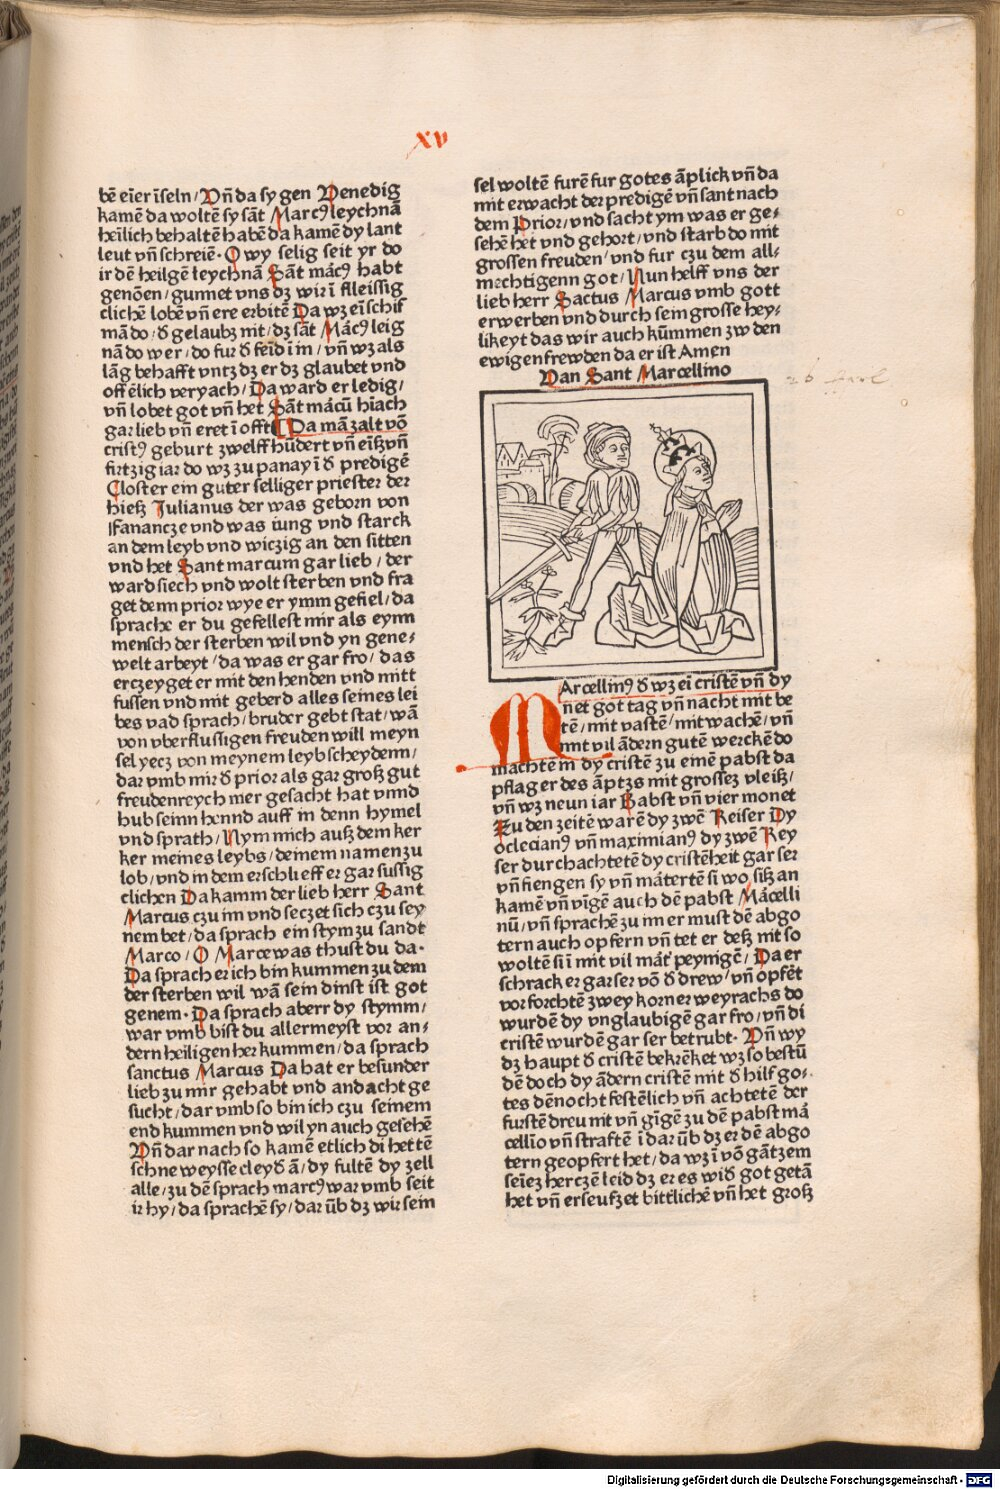 XV
bē eīer īseln/ Vn̄ da sy gen Venedig
kamē da woltē sy sāt Marcꝰ leychnā
heīlich behaltē habē da kamē dy lant
leut vn̄ schreiē· O wy selig seit yr do
ir dē heilgē leychnā Sāt mácꝰ habt
genōen/ gunnet vns dʒ wir ī fleissig
clichē lobē vn̄ ere erbitē Da wʒ eī schif
mā do/ d̄ gelaubʒ nit/ dʒ sāt Mácꝰ leig
nā do wer/ do fur d̄ feīd ī in/ vn̄ wʒ als
lāg behafft vntʒ dʒ er dʒ glaubet vnd
offēlich veryach/ Da ward er ledig/
vn̄ lobet got vn̄ het Sāt mácū hīach
gar lieb vn̄ eret ī offt Da mā zalt vō
cristꝰ geburt zwelff hūdert vn̄ eīß vn̄
firtzig iar do wʒ zu panay ī d̄ predigē
Closter ein guter selliger priester der
hieß Julianus der was geborn von
Fanancze vnd was iung vnd starck
an dem leyb vnd wiczig an den sitten
vnd het Sant marcum gar lieb/ der
ward siech vnd wolt sterben vnd fra
get denn prior wye er ymm gefiel/ da
sprache er du gefellest mir als eynn
mensch der sterben wil vnd yn gene⸗
welt arbeyt/ da was er gar fro/ das
erczeyget er mit den henden vnd mitt
fussen vnd mit geberd alles seines lei
bes vnd sprach/ bruder gebt stat/ wā
von vberflussigen freuden will meyn
sel yecz von meynem leyb scheydenn/
dar vmb mir d̄ prior als gar groß gut
freudenreych mer gesacht hat vnnd
hub seinn hennd auff in denn hymel
vnd sprath/ Nym mich auß dem ker
ker meines leybs/ deinem namen zu
lob/ vnd in dem erschlieff er gar sussig
clichen Da kamm der lieb herr Sant
Marcus czu im vnd seczet sich czu sey
nem bet/ da sprach ein stym zu sandt
Marco/ O Marce was thust du da·
Da sprach er ich bin kummen zu dem
der sterben wil wā sein dinst ist got
genem· Da sprach aberr dy stymm/
war vmb bist du allermeyst vor an⸗
dern heiligen her kummen/ da sprach
sanctus Marcus Da hat er besunder
lieb zu mir gehabt vnd andacht ge
sucht/ dar vmb so bin ich czu seinem
end kummen vnd wil yn auch gesehē
Vn̄ dar nach so kamē etlich di hettē
schneweysse cleyd̄ ā/ dy fultē dy zell
alle/ zu dē sprach marcꝰ war vmb seit
ir hy/ da sprachē sy/ dar ūb dʒ wir sein
sel woltē furē fur gotes āplick vn̄ da
mit erwacht der predigē vn̄ sant nach
dem Prior/ vnd sacht ym was er ge⸗
sehē het vnd gehort/ vnd starb do mit
grossen freuden/ vnd fur czu dem all⸗
mechtigenn got/ Nun helff vns der
lieb herr Sactus Marcus vmb gott
erwerben vnd durch sein grosse hey⸗
likeyt das wir auch kūmmen zw den
ewigen frewden da er ist Amen
Van Sant Marcellino
26 Aprl
MArcellinꝰ d̄ wʒ eī cristē vn̄ dy
net got tag vn̄ nacht mit be
tē/ mit vastē/ mit wachē/ vn̄
mit vil ādern gutē werckē do
machtē in dy cristē zu einē pabst da
pflag er des āptʒs mit grosseʒ vleiß/
vn̄ wʒ neun iar Babst vn̄ vier monet
Zu den zeitē warē dy zwē Keiser Dy
oclecianꝰ vn̄ maximianꝰ dy zwē Key
ser durchachtetē dy cristēheit gar ser
vn̄ fiengen sy vn̄ mátertē si wo siß an
kamē vn̄ vīgē auch dē pabst Mácelli
nū/ vn̄ sprachē zu im er must dē abgo
tern auch opfern vn̄ tet er deß nit so
woltē si ī mit vil mát̓ peynigē/ Da er
schrack er gar ser vō d̄ drew/ vn̄ opfēt
vor forchtē zwey korner weyrachs do
wurdē dy vnglaubigē gar fro/ vn̄ di
cristē wurdē gar ser betrubt· Vn̄ wy
dʒ haupt d̄ cristē bekrēket wʒ so bestū
dē doch dy ādern cristē mit d̄ hilf go⸗
tes dēnocht festēlich vn̄ achtetē der
furstē dreu nit vn̄ gīgē zu dē pabst má
cellīo vn̄ straftē ī dar ūb dʒ er dē abgo
tern geopfert het/ da wʒ ī vō gātzem
seīez herczē leid dʒ er es wid̄ got getā
het vn̄ erseufzet bittlichē vn̄ het groß
Digitalisierung gefördert durch die Deutsche Forschungsgemeinschaft - DFG